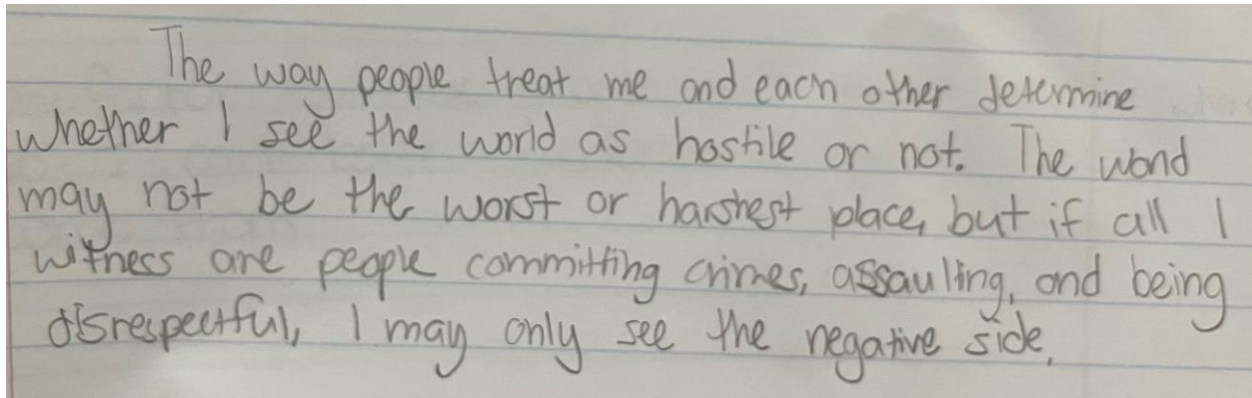 The way people treat me and each other determine
whether I see the world as hostile or not. The world
may not be the worst or harshest place, but if all I
witness are people committing crimes, assauling, and being
disrespectful, I may only see the negative side.